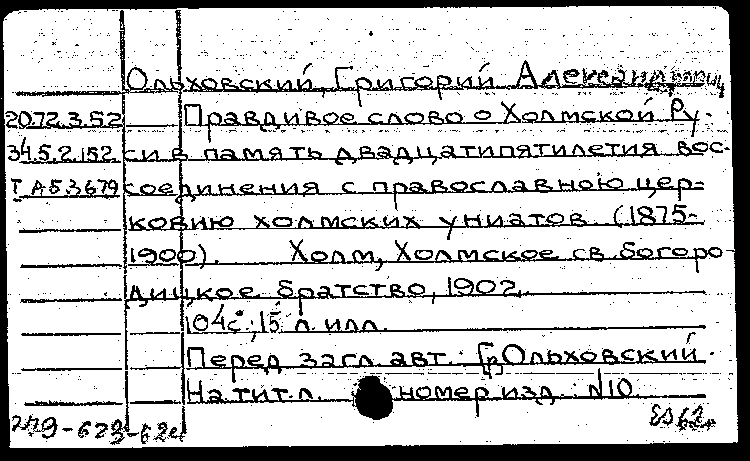 Ольховский, Григорий Александрович
20.72.3.52 Правдивое слово о Холмской Ру-
34.5.2.152 си в память двадцатипятилетия вос-
I A 53679 соединения с православною цер-
ковию холмских униатов (1875-
1900). Холм, Холмское св. богоро-
дицкое братство, 1902.
104с.; 15 л. илл.
Перед загл. авт.: Гр. Ольховский.
На тит. л. номер изд.: N10
249-623-624